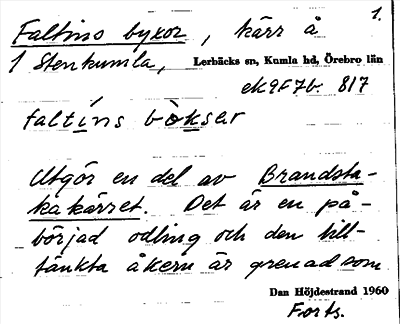 1.
Faltins byxor, kärr å
1 Stenkumla, Lerbäcks sn, Kumla hd, Örebro län
ek9F7b. 817
faltíns bòkser
Utgör en del av Brandsta-
kakärret. Det är en på-
börjad odling och den till-
tänkta åkern är grenad som
Dan Höjdestrand 1960
Forts.